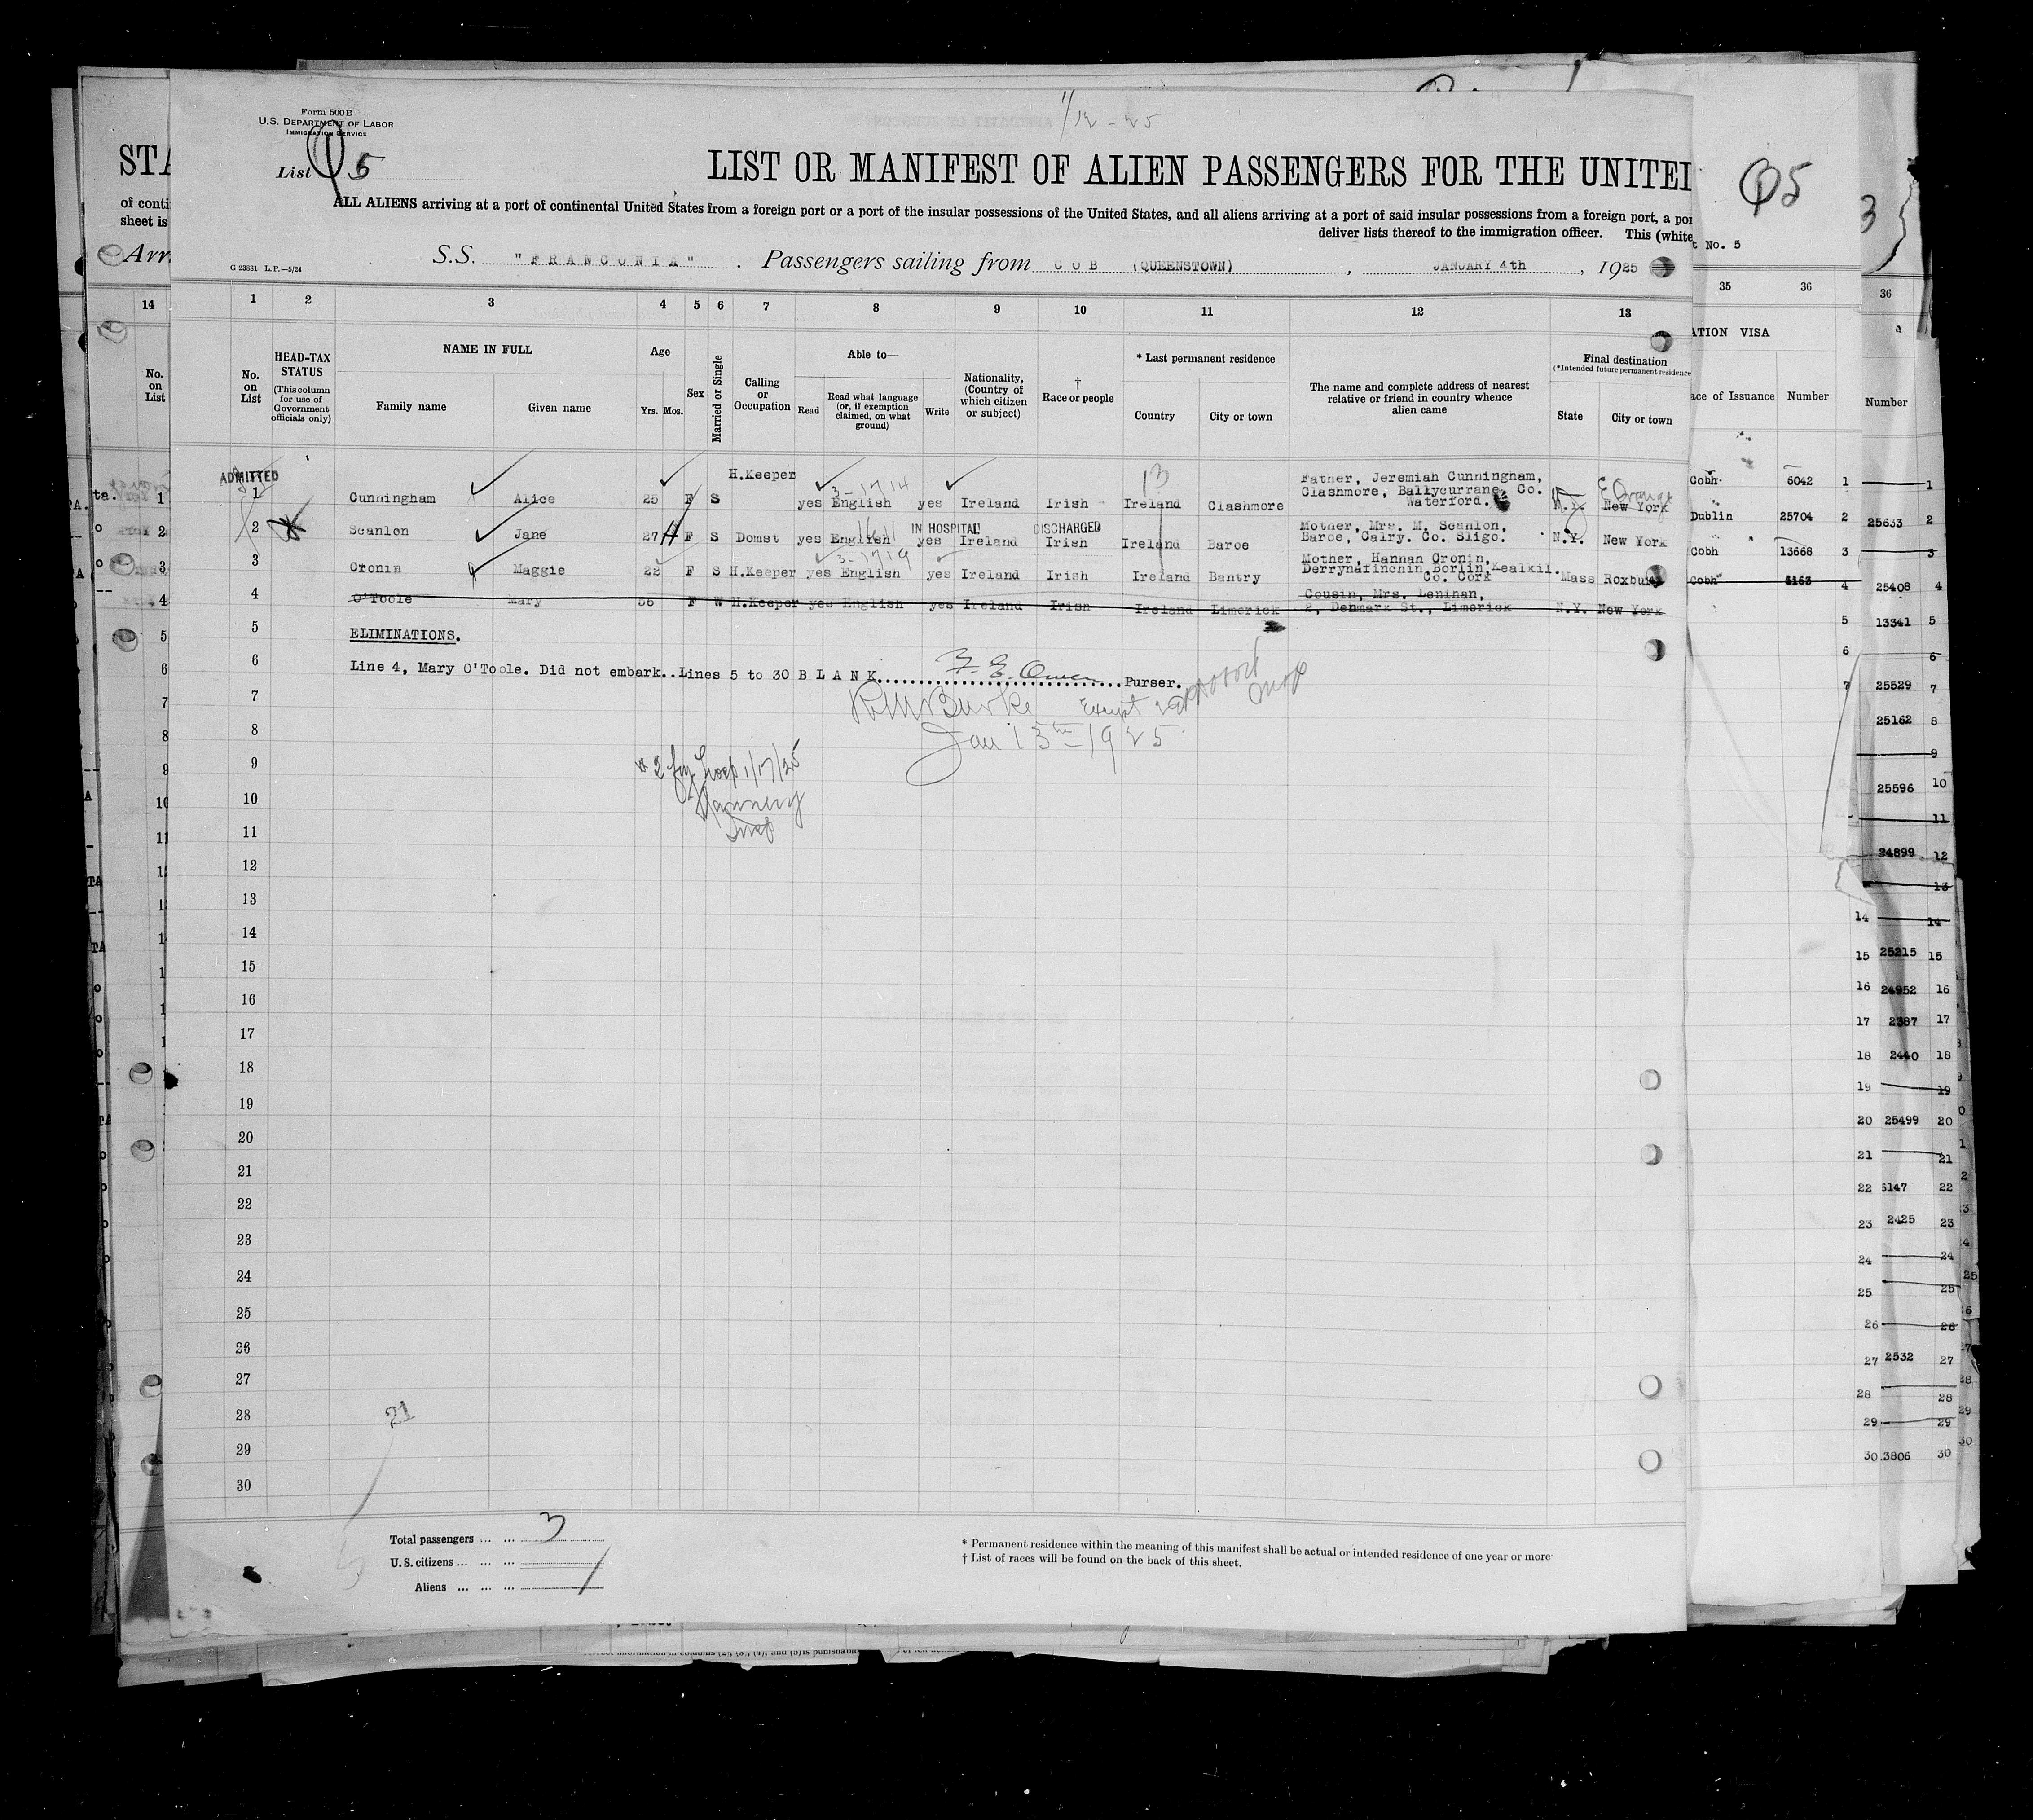 1/12-25
Form 500 B
U.S. DEPARTMENT OF LABOR
IMMIGRATION SERVICE
List 5
LIST OR MANIFEST OF ALIEN PASSENGERS FOR THE UNITE
ALL ALIENS arriving at a port of continental United States from a foreign port or a port of the insular possessions of the United States, and all aliens arriving at a port of said insular possessions from a foreign port, a por
deliver lists thereof to the immigration officer. This (white
G 23881 L.P.—5/24
S.S. "FRANCONIA". Passengers sailing from COB (QUEENSTOWN), JANUARY 4th, 1925
1 2 3 4 5 6 7 8 9 10 11 12 13
No. on List
HEAD-TAX STATUS
(This column for use of Government officials only)
NAME IN FULL
Family name Given name
Age
Yrs. Mos.
Sex
Married or Single
Calling or Occupation
Able to—
Read
Read what language (or, if exemption claimed, on what ground)
Write
Nationality, (Country of which citizen or subject)
† Race or people
* Last permanent residence
Country City or town
The name and complete address of nearest relative or friend in country whence alien came
Final destination
(*Intended future permanent residence
State City or town
ADMITTED
1 Cunningham Alice 25 F S H.Keeper yes English yes Ireland Irish Ireland Clashmore Father, Jeremiah Cunningham, Clashmore, Ballycurrane, Co. Waterford. N.Y. New York
3-1714
13
E Orange
2 Scanlon Jane 27 F S Domst yes English yes Ireland Irish Ireland Baroe Mother, Mrs. M. Scanlon, Baroe, Calry. Co. Sligo. N.Y. New York
IN HOSPITAL DISCHARGED
3 Cronin Maggie 22 F S H.Keeper yes English yes Ireland Irish Ireland Bantry Mother, Hannan Cronin, Derrynafinchin, Borlin, Kealkil. Co. Cork Mass Roxbury
3-1719
4 O'Toole Mary 56 F W H.Keeper yes English yes Ireland Irish Ireland Limerick Cousin, Mrs. Leninan, 2, Denmark St., Limerick N.Y. New York
5 ELIMINATIONS.
6 Line 4, Mary O'Toole. Did not embark..Lines 5 to 30 B L A N K. F. E. Owen Purser.
7
RM Burke
Jan 13th 1925
8
9
1/17/25
10
11
12
13
14
15
16
17
18
19
20
21
22
23
24
25
26
27
28
21
29
30
Total passengers ... ... 3
U. S. citizens ... ... ...
Aliens ... ... ...
* Permanent residence within the meaning of this manifest shall be actual or intended residence of one year or more
† List of races will be found on the back of this sheet.
STA
of conti
sheet is
Arr
14
No. on List
5
t No. 5
35 36
ATION VISA
ace of Issuance Number
Cobh 6042 1
Dublin 25704 2
Cobh 13668 3
Cobh 8163 4
5
6
7
36
Number
1
25633 2
3
25408 4
13341 5
6
25529 7
25162 8
9
25596 10
11
24899 12
13
14
25215 15
24952 16
2387 17
2440 18
19
25499 20
21
6147 22
2425 23
24
25
26
2532 27
28
29
3806 30